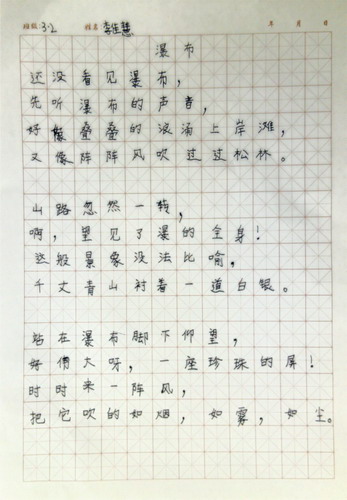 班级:3.2 姓名 李佳慧 年 月 日
瀑布
还没看见瀑布,
先听瀑布的声音,
好像叠叠的浪涌上岸滩,
又像阵阵风吹过过松林。
山路忽然一转,
啊,望见了瀑的全身!
这般景象没法比喻,
千丈青山衬着一道白银。
站在瀑布脚下仰望,
好伟大呀,一座珍珠的屏!
时时来一阵风,
把它吹的如烟,如雾,如尘。